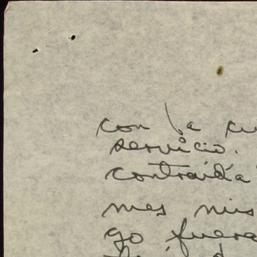 con la cu
servicio.
contraída
mes mis
go fuera